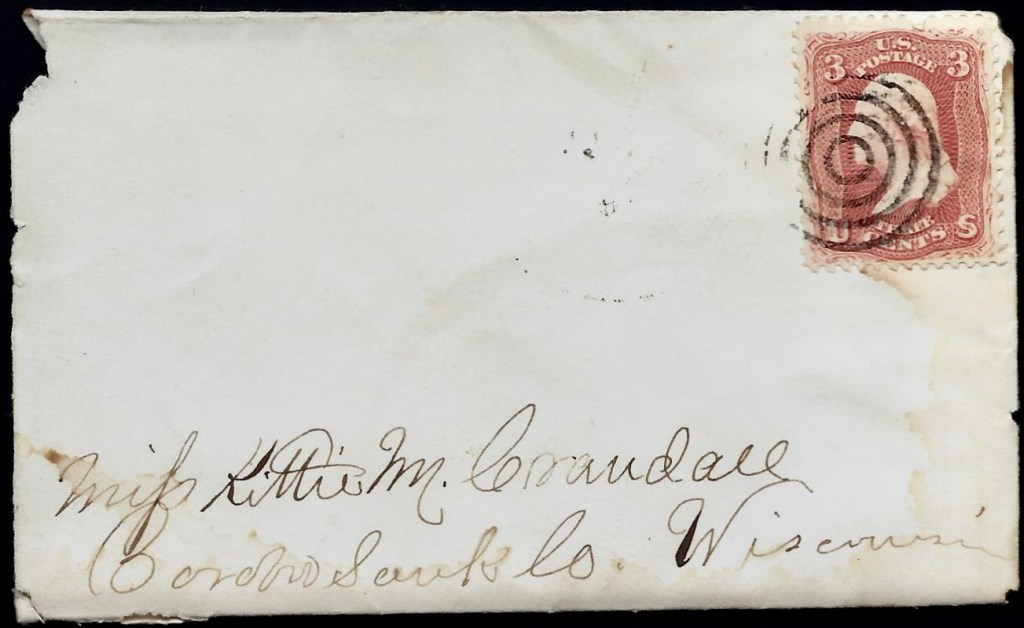 U.S.
POSTAGE
3 3
THREE
U CENTS S
Miss Kittie M. Crandall
Sauk Co. Wisconsin